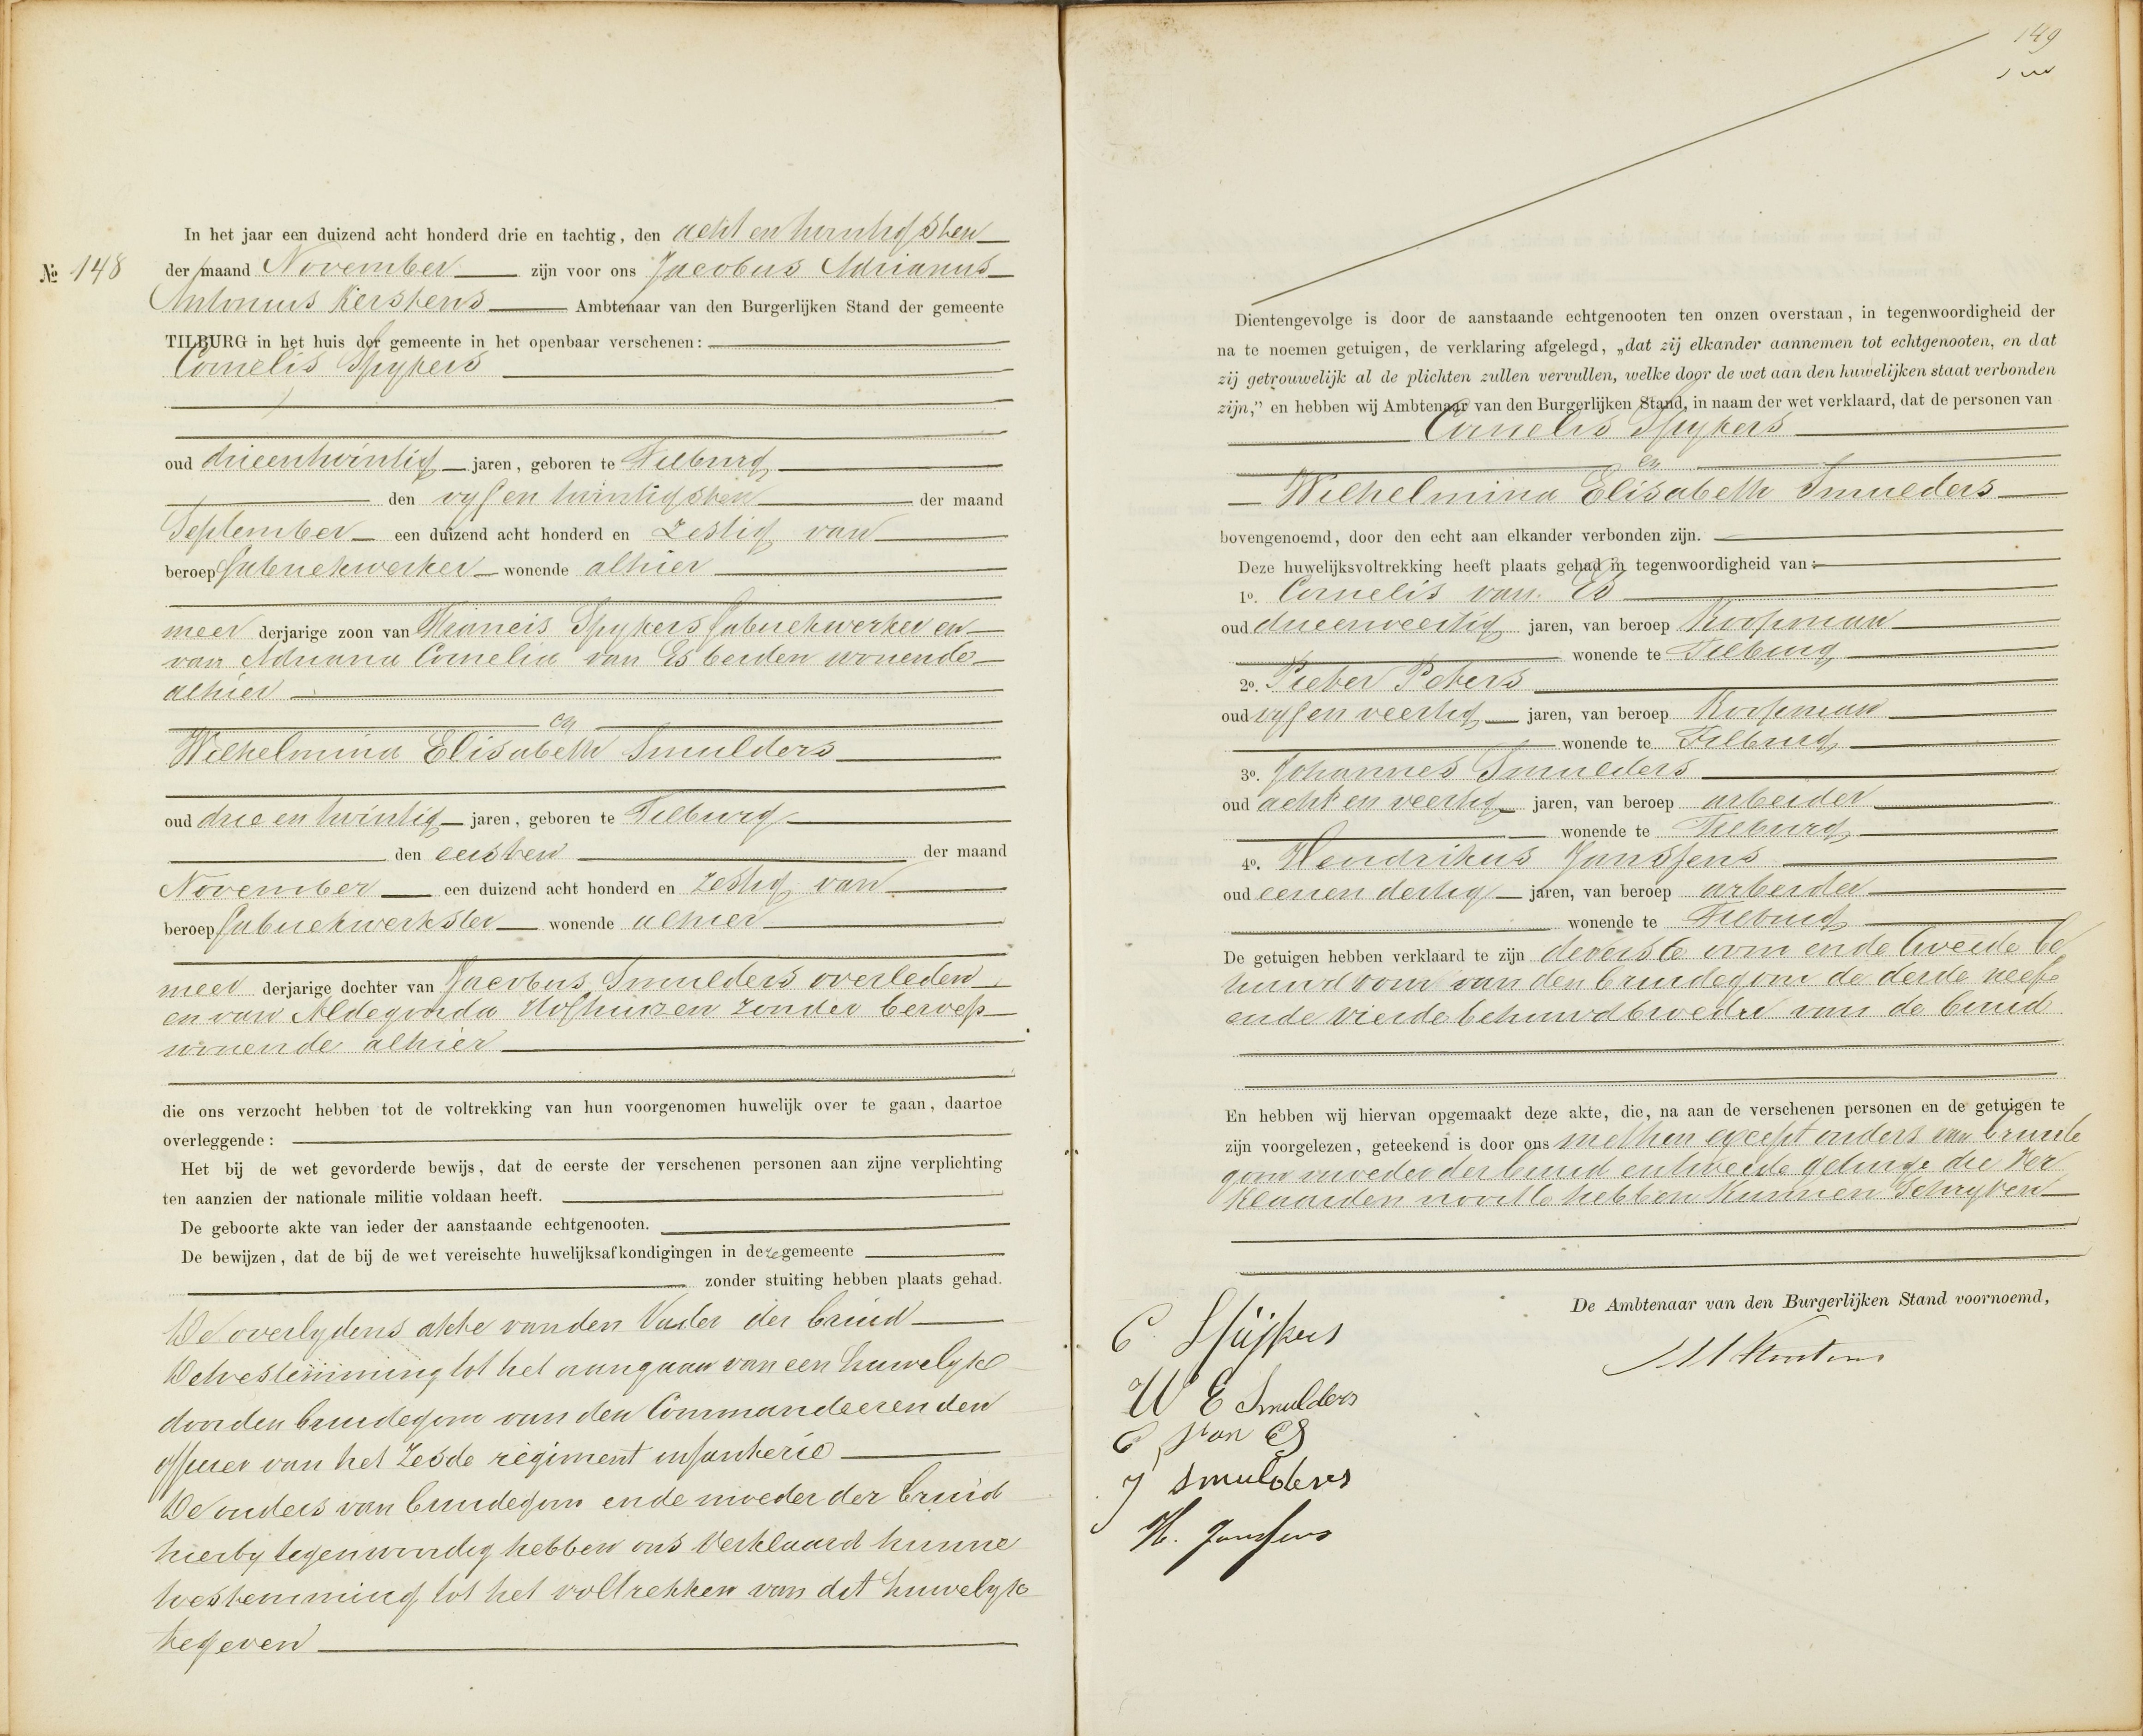 In het jaar een duizend acht honderd drie en tachtig, den acht en twintigsten
№ 148 der maand November zijn voor ons Jacobus Adrianus
Antonius Kerstens Ambtenaar van den Burgerlijken Stand der gemeente
TILBURG in het huis der gemeente in het openbaar verschenen:
Cornelis Spijkers
oud drieentwintig jaren, geboren te Tilburg
den vijf en twintigsten der maand
September een duizend acht honderd en zestig van
beroep fabriekwerker wonende alhier
meer derjarige zoon van Francis Spijkers fabriekwerker en
van Adriana Cornelia van Es beiden wonende
alhier
en
Wilhelmina Elisabeth Smulders
oud drie en twintig jaren, geboren te Tilburg
den eersten der maand
November een duizend acht honderd en zestig van
beroep fabriekwerkster wonende alhier
meer derjarige dochter van Jacobus Smulders overleden
en van Aldegonda Hofhuizen zonder beroep
wonende alhier
die ons verzocht hebben tot de voltrekking van hun voorgenomen huwelijk over te gaan, daartoe
overleggende:
Het bij de wet gevorderde bewijs, dat de eerste der verschenen personen aan zijne verplichting
ten aanzien der nationale militie voldaan heeft.
De geboorte akte van ieder der aanstaande echtgenooten.
De bewijzen, dat de bij de wet vereischte huwelijksafkondigingen in deze gemeente
zonder stuiting hebben plaats gehad.
De overlijdens akte van den Vader der bruid
De toestemming tot het aangaan van een huwelijk
door den bruidegom van den Commandeerenden
officier van het Zesde regiment infanterie
De ouders van bruidegom en de moeder der bruid
hierbij tegenwoordig hebben ons verklaard hunne
toestemming tot het voltrekken van dit huwelijk
te geven
149
Dientengevolge is door de aanstaande echtgenooten ten onzen overstaan, in tegenwoordigheid der
na te noemen getuigen, de verklaring afgelegd, „dat zij elkander aannemen tot echtgenooten, en dat
zij getrouwelijk al de plichten zullen vervullen, welke door de wet aan den huwelijken staat verbonden
zijn,” en hebben wij Ambtenaar van den Burgerlijken Stand, in naam der wet verklaard, dat de personen van
Cornelis Spijkers
en
Wilhelmina Elisabeth Smulders
bovengenoemd, door den echt aan elkander verbonden zijn.
Deze huwelijksvoltrekking heeft plaats gehad in tegenwoordigheid van:
1o. Cornelis van Es
oud drieenveertig jaren, van beroep Koopman
wonende te Tilburg
2o. Pieter Peters
oud vijf en veertig jaren, van beroep Koopman
wonende te Tilburg
3o. Johannes Smulders
oud acht en veertig jaren, van beroep arbeider
wonende te Tilburg
4o. Hendrikus Janssens
oud eenen dertig jaren, van beroep arbeider
wonende te Tilburg
De getuigen hebben verklaard te zijn de eerste oom en de tweede be
huwd oom van den bruidegom de derde neef
en de vierde behuwdbroeder van de bruid
En hebben wij hiervan opgemaakt deze akte, die, na aan de verschenen personen en de getuigen te
zijn voorgelezen, geteekend is door ons met hen except ouders van bruide
gom moeder der bruid en tweede getuige die ver
klaarden nooit te hebben kunnen Schrijven
De Ambtenaar van den Burgerlijken Stand voornoemd,
C Spijkers
W E Smulders
C van Es
J Smulders
H. Janssens